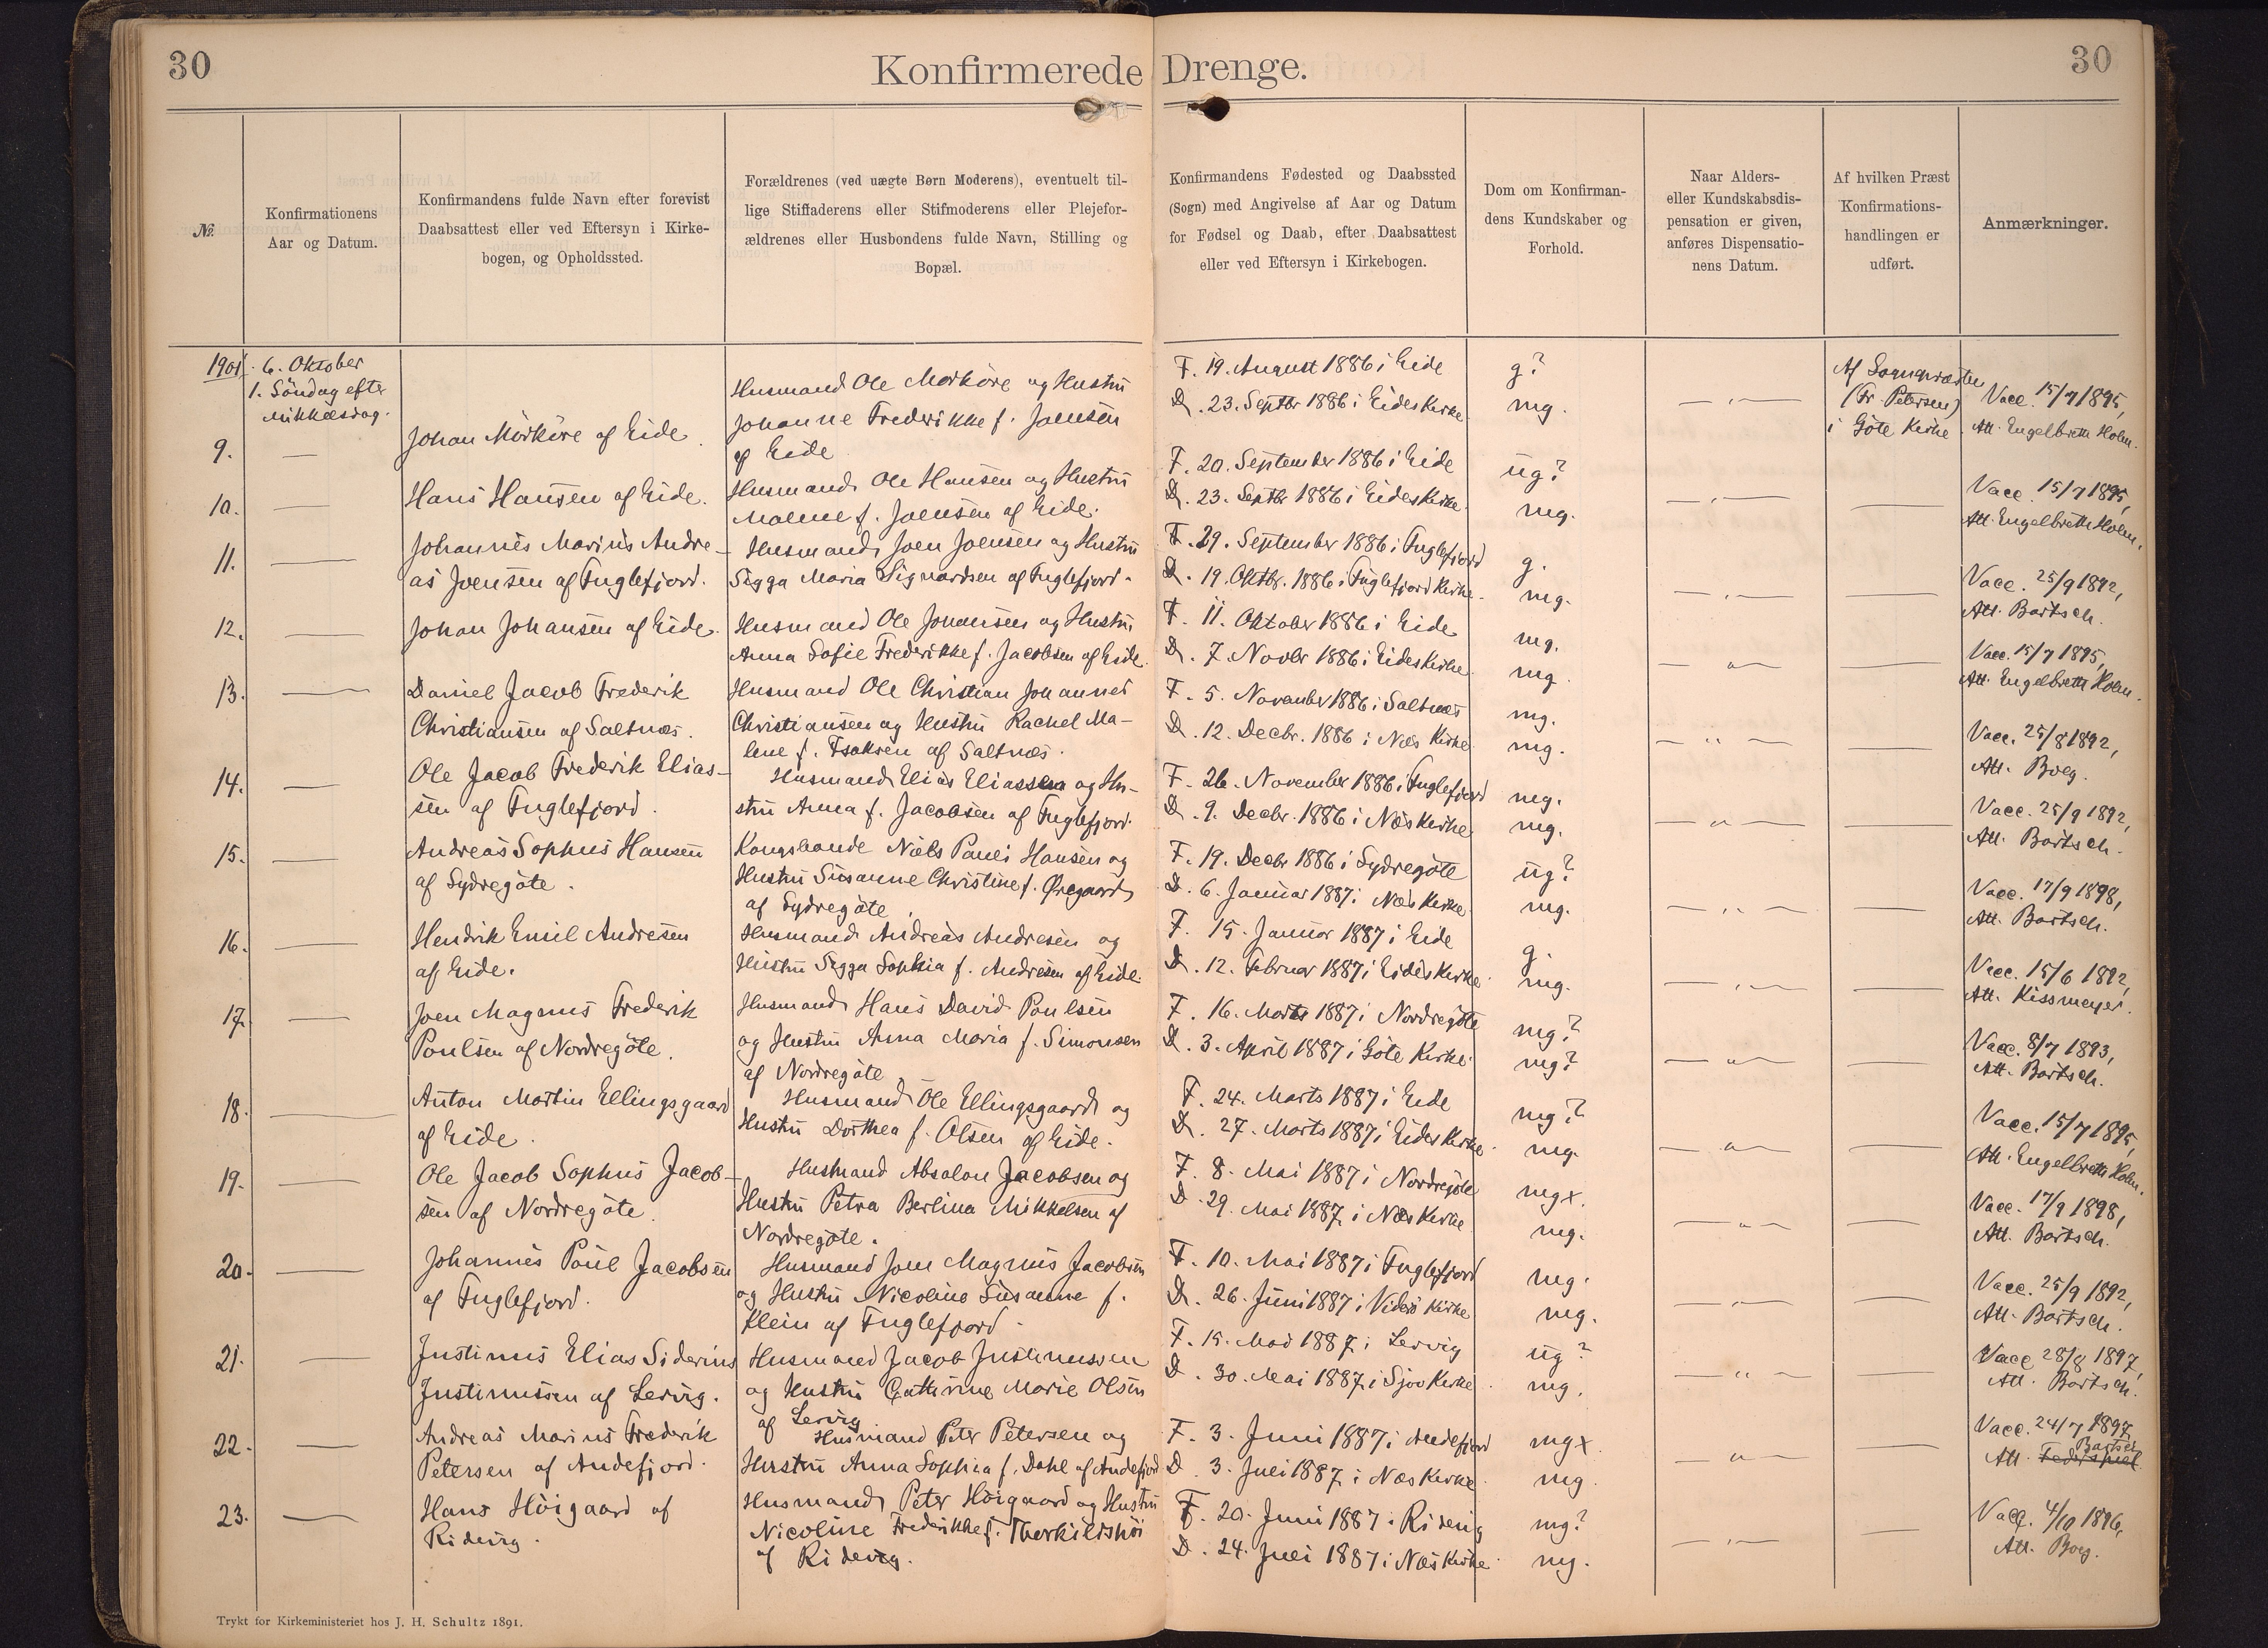 30
Konfirmerede Drenge.
30
№.
Konfirmationens
Aar og Datum.
Konfirmandens fulde Navn efter forevist
Daabsattest eller ved Eftersyn i Kirke-
bogen, og Opholdssted.
Forældrenes (ved uægte Børn Moderens), eventuelt til-
lige Stiffaderens eller Stifmoderens eller Plejefor-
ældrenes eller Husbondens fulde Navn, Stilling og
Bopæl.
Konfirmandens Fødested og Daabssted
(Sogn) med Angivelse af Aar og Datum
for Fødsel og Daab, efter Daabsattest
eller ved Eftersyn i Kirkebogen.
Dom om Konfirman-
dens Kundskaber og
Forhold.
Naar Alders-
eller Kundskabsdis-
pensation er given,
anføres Dispensatio-
nens Datum.
Af hvilken Præst
Konfirmations-
handlingen er
udført.
Anmærkninger.
1901. 6. Oktober
1. Söndag efter
Mikkelsdag.
9.
Johan Mörköre af Eide.
Husmand Ole Mörköre og Hustru
Johanne Frederikke f. Joensen
af Eide
F. 19. August 1886 i Eide
D. 23. Septbr 1886 i Eides Kirke.
g?
mg.
Af Sognepræsten
(Fr. Petersen)
i Göte Kirke.
Vacc. 15/7 1895,
Att. Engelbreth Holm.
10.
Hans Hansen af Eide.
Husmand Ole Hansen og Hustru
Malene f. Joensen af Eide.
F. 20. September 1886 i Eide
D. 23. Septbr 1886 i Eides Kirke.
ug?
mg.
Vacc. 15/7 1895,
Att. Engelbreth Holm.
11.
Johannes Marius Andre-
as Joensen af Fuglefjord.
Husmand Joen Joensen og Hustru
Sigga Maria Sigvardsen af Fuglefjord.
F. 29. September 1886 i Fuglefjord
D. 19. Oktbr. 1886 i Fuglefjord Kirke.
g.
mg.
Vacc. 25/9 1892,
Att. Bartsch.
12.
Johan Johansen af Eide.
Husmand Ole Johansen og Hustru
Anna Sofie Frederikke f. Jacobsen af Eide.
F. 11. Oktober 1886 i Eide
D. 7. Novbr 1886 i Eides Kirke.
mg.
mg.
Vacc. 15/7 1895,
Att. Engelbreth Holm.
13.
Daniel Jacob Frederik
Christiansen af Saltnæs.
Husmand Ole Christian Johannes
Christiansen og Hustru Rachel Ma-
lene f. Isaksen af Saltnæs.
F. 5. November 1886 i Saltnæs
D. 12. Decbr. 1886 i Næs Kirke.
mg.
mg.
Vacc. 25/8 1892,
Att. Boeg.
14.
Ole Jacob Frederik Elias-
sen af Fuglefjord.
Husmand Elias Eliassen og Hu-
stru Anna f. Jacobsen af Fuglefjord.
F. 26. November 1886 i Fuglefjord
D. 9. Decbr. 1886 i Næs Kirke.
mg.
mg.
Vacc. 25/9 1892,
Att. Bartsch.
15.
Andreas Sophus Hansen
af Sydregöte.
Kongsbonde Niels Pauli Hansen og
Hustru Susanne Christine f. Øregaard
af Sydregöte.
F. 19. Decbr 1886 i Sydregöte
D. 6. Januar 1887 i Næs Kirke.
ug?
mg.
Vacc. 17/9 1898,
Att. Bartsch.
16.
Hendrik Emil Andresen
af Eide.
Husmand Andreas Andresen og
Hustru Sigga Sophia f. Andresen af Eide.
F. 15. Januar 1887 i Eide
D. 12. Februar 1887 i Eides Kirke.
g.
mg.
Vacc. 15/6 1892,
Att. Kissmeyer.
17.
Joen Magnus Frederik
Poulsen af Nordregöte.
Husmand Hans David Poulsen
og Hustru Anna Maria f. Simonsen
af Nordregöte
F. 16. Marts 1887 i Nordregöte
D. 3. April 1887 i Göte Kirke.
mg?
mg?
Vacc. 8/7 1893,
Att. Bartsch.
18.
Anton Martin Ellingsgaard
af Eide.
Husmand Ole Ellingsgaard og
Hustru Dorthea f. Olsen af Eide.
F. 24. Marts 1887 i Eide
D. 27. Marts 1887 i Eides Kirke.
mg?
mg.
Vacc. 15/7 1895,
Att. Engelbreth Holm.
19.
Ole Jacob Sophus Jacob-
sen af Nordregöte.
Husmand Absalon Jacobsen og
Hustru Petra Berlina Mikkelsen af
Nordregöte.
F. 8. Mai 1887 i Nordregöte
D. 29. Mai 1887 i Næs Kirke.
mgx.
mg.
Vacc. 17/9 1898,
Att. Bartsch.
20.
Johannes Poul Jacobsen
af Fuglefjord.
Husmand Joen Magnus Jacobsen
og Hustru Nicoline Susanne f.
Klein af Fuglefjord.
F. 10. Mai 1887 i Fuglefjord
D. 26. Juni 1887 i Viderö Kirke.
mg.
mg.
Vacc. 25/9 1892,
Att. Bartsch.
21.
Justinus Elias Siderius
Justinussen af Lervig.
Husmand Jacob Justinussen
og Hustru Cathrine Marie Olsen
af Lervig
F. 15. Mai 1887 i Lervig
D. 30. Mai 1887 i Sjov Kirke.
ug?
mg.
Vacc. 28/8 1897,
Att. Bartsch.
22.
Andreas Marius Frederik
Petersen af Andefjord.
Husmand Peter Petersen og
Hustru Anna Sophia f. Dahl af Andefjord
F. 3. Juni 1887 i Andefjord
D. 3. Juli 1887 i Næs Kirke.
mgx.
mg.
Vacc. 24/7 1897,
Bartsch
Att. Federspiel
23.
Hans Höigaard af
Ridevig.
Husmand Peter Höigaard og Hustru
Nicoline Frederikke f. Thorkildshöi
af Ridevig.
F. 20. Juni 1887 i Ridevig
D. 24. Juli 1887 i Næs Kirke.
mg?
mg.
Vacc. 4/10 1896,
Att. Boeg.
Trykt for Kirkeministeriet hos J. H. Schultz 1891.